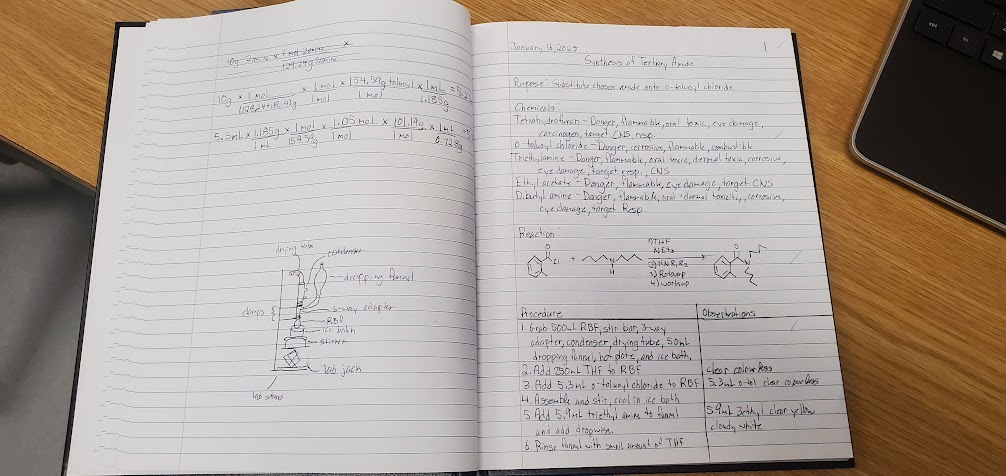 10g 2amine x 1 mol 2amine x
129.24g 2amine
10g x 1 mol x 1 mol x 154.59g toluoyl x 1mL = 5.
1 mol 1 mol 1.185g
5.3mL x 1.185g x 1 mol x 1.05 mol x 101.19g x 1mL
1 mL 154.59g 1 mol 1 mol 0.728g
drying tube
condenser
dropping funnel
clamps
3-way adapter
RBF
ice bath
stirrer
lab jack
lab stand
January 16, 2025
1
Synthesis of Tertiary Amide
Purpose: Substitute chosen amide onto o-toluoyl chloride
Chemicals:
Tetrahydrofuran - Danger, flammable, oral toxic, eye damage,
carcinogen, target CNS, resp.
o-toluoyl chloride - Danger, corrosive, flammable, combustible
Triethylamine - Danger, flammable, oral toxic, dermal toxic, corrosive,
eye damage, target resp., CNS
Ethyl acetate - Danger, flammable, eye damage, target CNS
Dibutyl amine - Danger, flammable, oral + dermal toxicity, corrosive,
eye damage, target Resp
Reaction:
1) THF
NEt3
2) HNR1R2
3) Rotovap
4) workup
O
Cl
+
N
H
O
N
Procedure
Observations
1. Grab 500mL RBF, stir bar, 3-way
adapter, condenser, drying tube, 50mL
dropping funnel, hot plate, and ice bath.
2. Add 250mL THF to RBF
clear colourless
3. Add 5.3mL o-toluoyl chloride to RBF
5.3mL o-tol clear colourless
4. Assemble and stir, cool in ice bath
5. Add 5.9mL triethyl amine to funnel
5.9mL 3ethyl clear yellow
and add dropwise.
cloudy white
6. Rinse funnel with small amount of THF
ctrl
fn